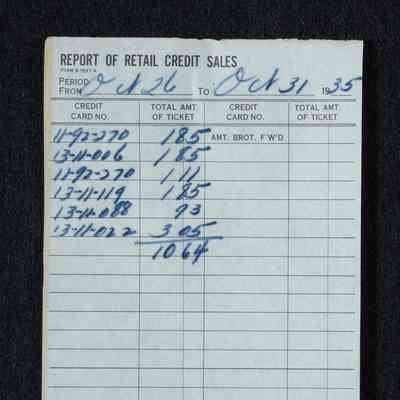 REPORT OF RETAIL CREDIT SALES
PERIOD FROM Oct 26 TO Oct 31 1935
CREDIT CARD NO. TOTAL AMT OF TICKET CREDIT CARD NO. TOTAL AMT OF TICKET
11-92-270 185 AMT. BROT. F'W'D
13-11-006 185
11-92-270 111
13-11-119 185
13-11-088 93
13-11-022 305
1064